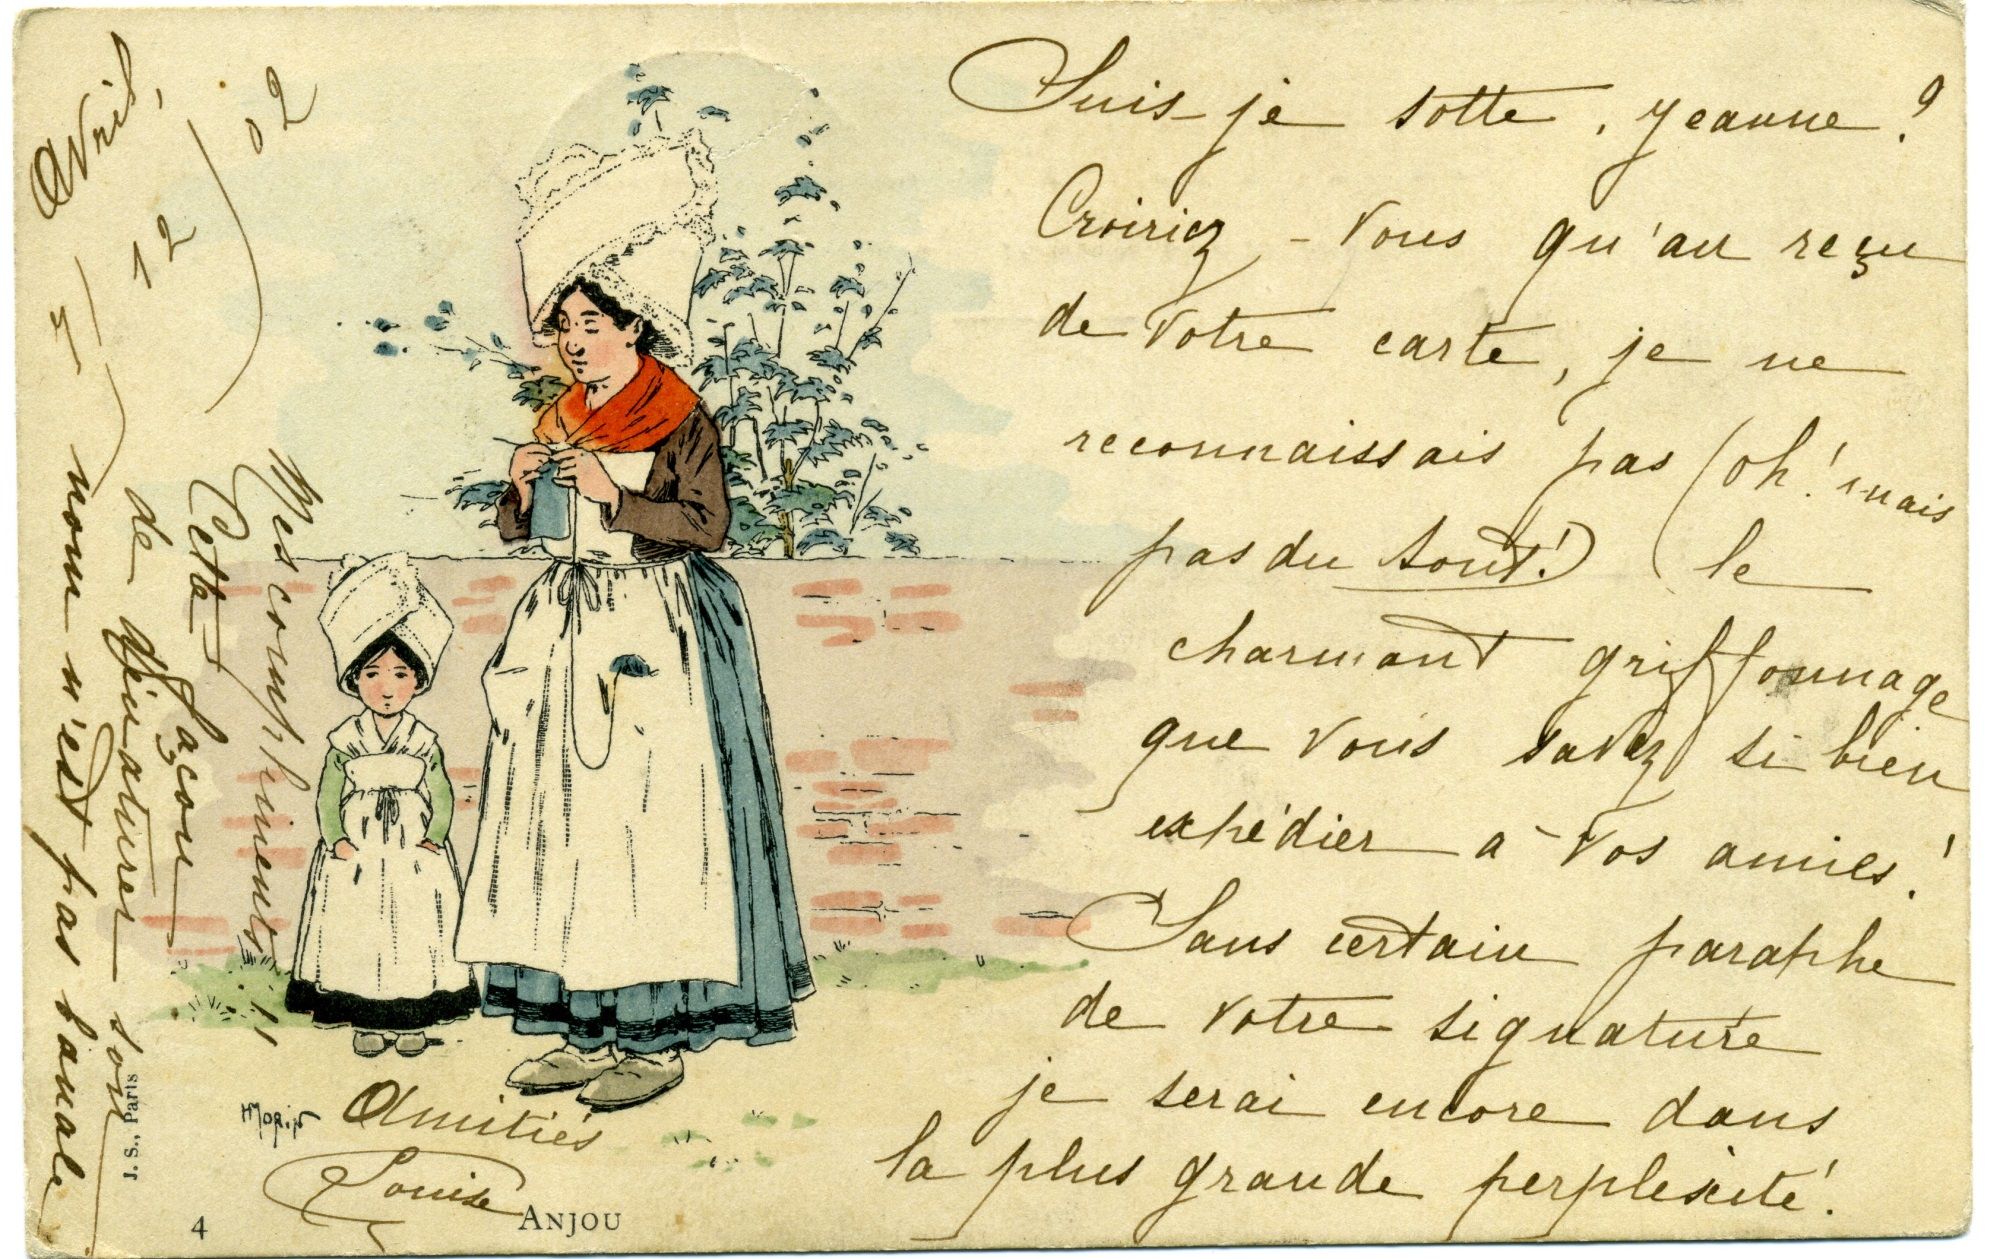 Suis-je sotte, Jeanne ?
Croiriez-vous qu'au reçu
de votre carte, je ne
reconnaissais pas (oh! mais
pas du tout!) le
charmant griffonnage
que vous savez si bien
expédier à vos amies!
Sans certain paraphe
de votre signature
je serai encore dans
la plus grande perplexité!
Avril,
12
02
Mes compliments!!
Cette façon
de dénaturer son
nom n'est pas banale
Amitiés
Louise
HMorin
J. S., Paris
4
ANJOU